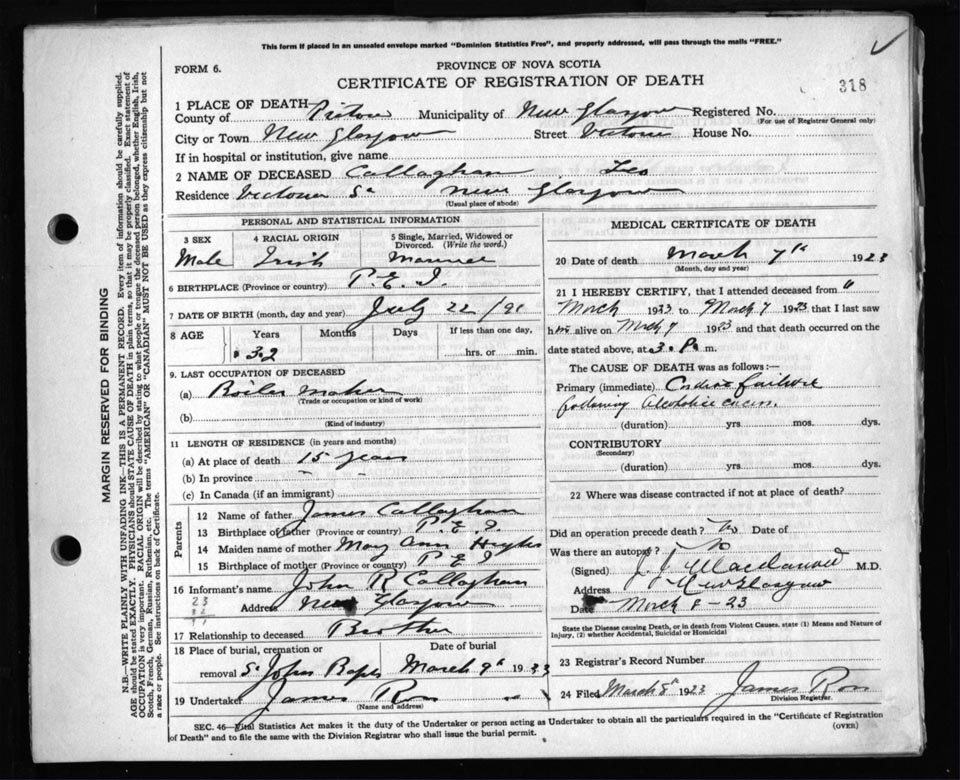 This form if placed in an unsealed envelope marked "Dominion Statistics Free", and properly addressed, will pass through the mails "FREE."
FORM 6.
PROVINCE OF NOVA SCOTIA
CERTIFICATE OF REGISTRATION OF DEATH
318
1 PLACE OF DEATH
County of Pictou Municipality of New Glasgow Registered No.
(For use of Registrar General only)
City or Town New Glasgow Street Victoria House No.
If in hospital or institution, give name
2 NAME OF DECEASED Callaghan, Leo
Residence Victoria St New Glasgow
(Usual place of abode)
PERSONAL AND STATISTICAL INFORMATION
3 SEX
Male
4 RACIAL ORIGIN
Irish
5 Single, Married, Widowed or Divorced. (Write the word.)
Married
6 BIRTHPLACE (Province or country) P. E. I.
7 DATE OF BIRTH (month, day and year) July 22/91
8 AGE Years Months Days If less than one day,
32 hrs. or min.
9. LAST OCCUPATION OF DECEASED
(a) Boiler Maker
(Trade or occupation or kind of work)
(b)
(Kind of industry)
11 LENGTH OF RESIDENCE (in years and months)
(a) At place of death 15 years
(b) In province
(c) In Canada (if an immigrant)
Parents
12 Name of father James Callaghan
13 Birthplace of father (Province or country) P E I
14 Maiden name of mother Mary Ann Hughes
15 Birthplace of mother (Province or country) P E I
16 Informant's name John R Callaghan
Address New Glasgow
23
32
17 Relationship to deceased Brother
18 Place of burial, cremation or Date of burial
removal St Johns March 9th 1933
19 Undertaker James Ross
(Name and address)
MEDICAL CERTIFICATE OF DEATH
20 Date of death March 7th 1923
(Month, day and year)
21 I HEREBY CERTIFY, that I attended deceased from
March 1923 to March 7 1923 that I last saw
him alive on Mch 7 1923 and that death occurred on the
date stated above, at 3. P. m.
The CAUSE OF DEATH was as follows:—
Primary (immediate) Cardiac failure
following Alcoholic
(duration) yrs mos. dys.
CONTRIBUTORY
(Secondary)
(duration) yrs. mos. dys.
22 Where was disease contracted if not at place of death?
Did an operation precede death? No Date of
Was there an autopsy? No
(Signed) M.D.
Address New Glasgow
Date March 8-23
State the Disease causing Death, or in death from Violent Causes, state (1) Means and Nature of Injury, (2) whether Accidental, Suicidal or Homicidal
23 Registrar's Record Number
24 Filed March 8th 1923 James Ross
Division Registrar.
SEC. 46—Vital Statistics Act makes it the duty of the Undertaker or person acting as Undertaker to obtain all the particulars required in the "Certificate of Registration
of Death" and to file the same with the Division Registrar who shall issue the burial permit.
(OVER)
MARGIN RESERVED FOR BINDING
N.B.—WRITE PLAINLY WITH UNFADING INK—THIS IS A PERMANENT RECORD. Every item of information should be carefully supplied.
AGE should be stated EXACTLY. PHYSICIANS should STATE CAUSE OF DEATH in plain terms, so that it may be properly classified. Exact statement of
OCCUPATION is very important. RACIAL ORIGIN will be described by stating to what people or tongue the deceased person belonged, whether English, Irish,
Scotch, French, German, Russian, Ruthenian, etc. The terms "AMERICAN" OR "CANADIAN" MUST NOT BE USED as they express citizenship but not
a race or people. See instructions on back of Certificate.